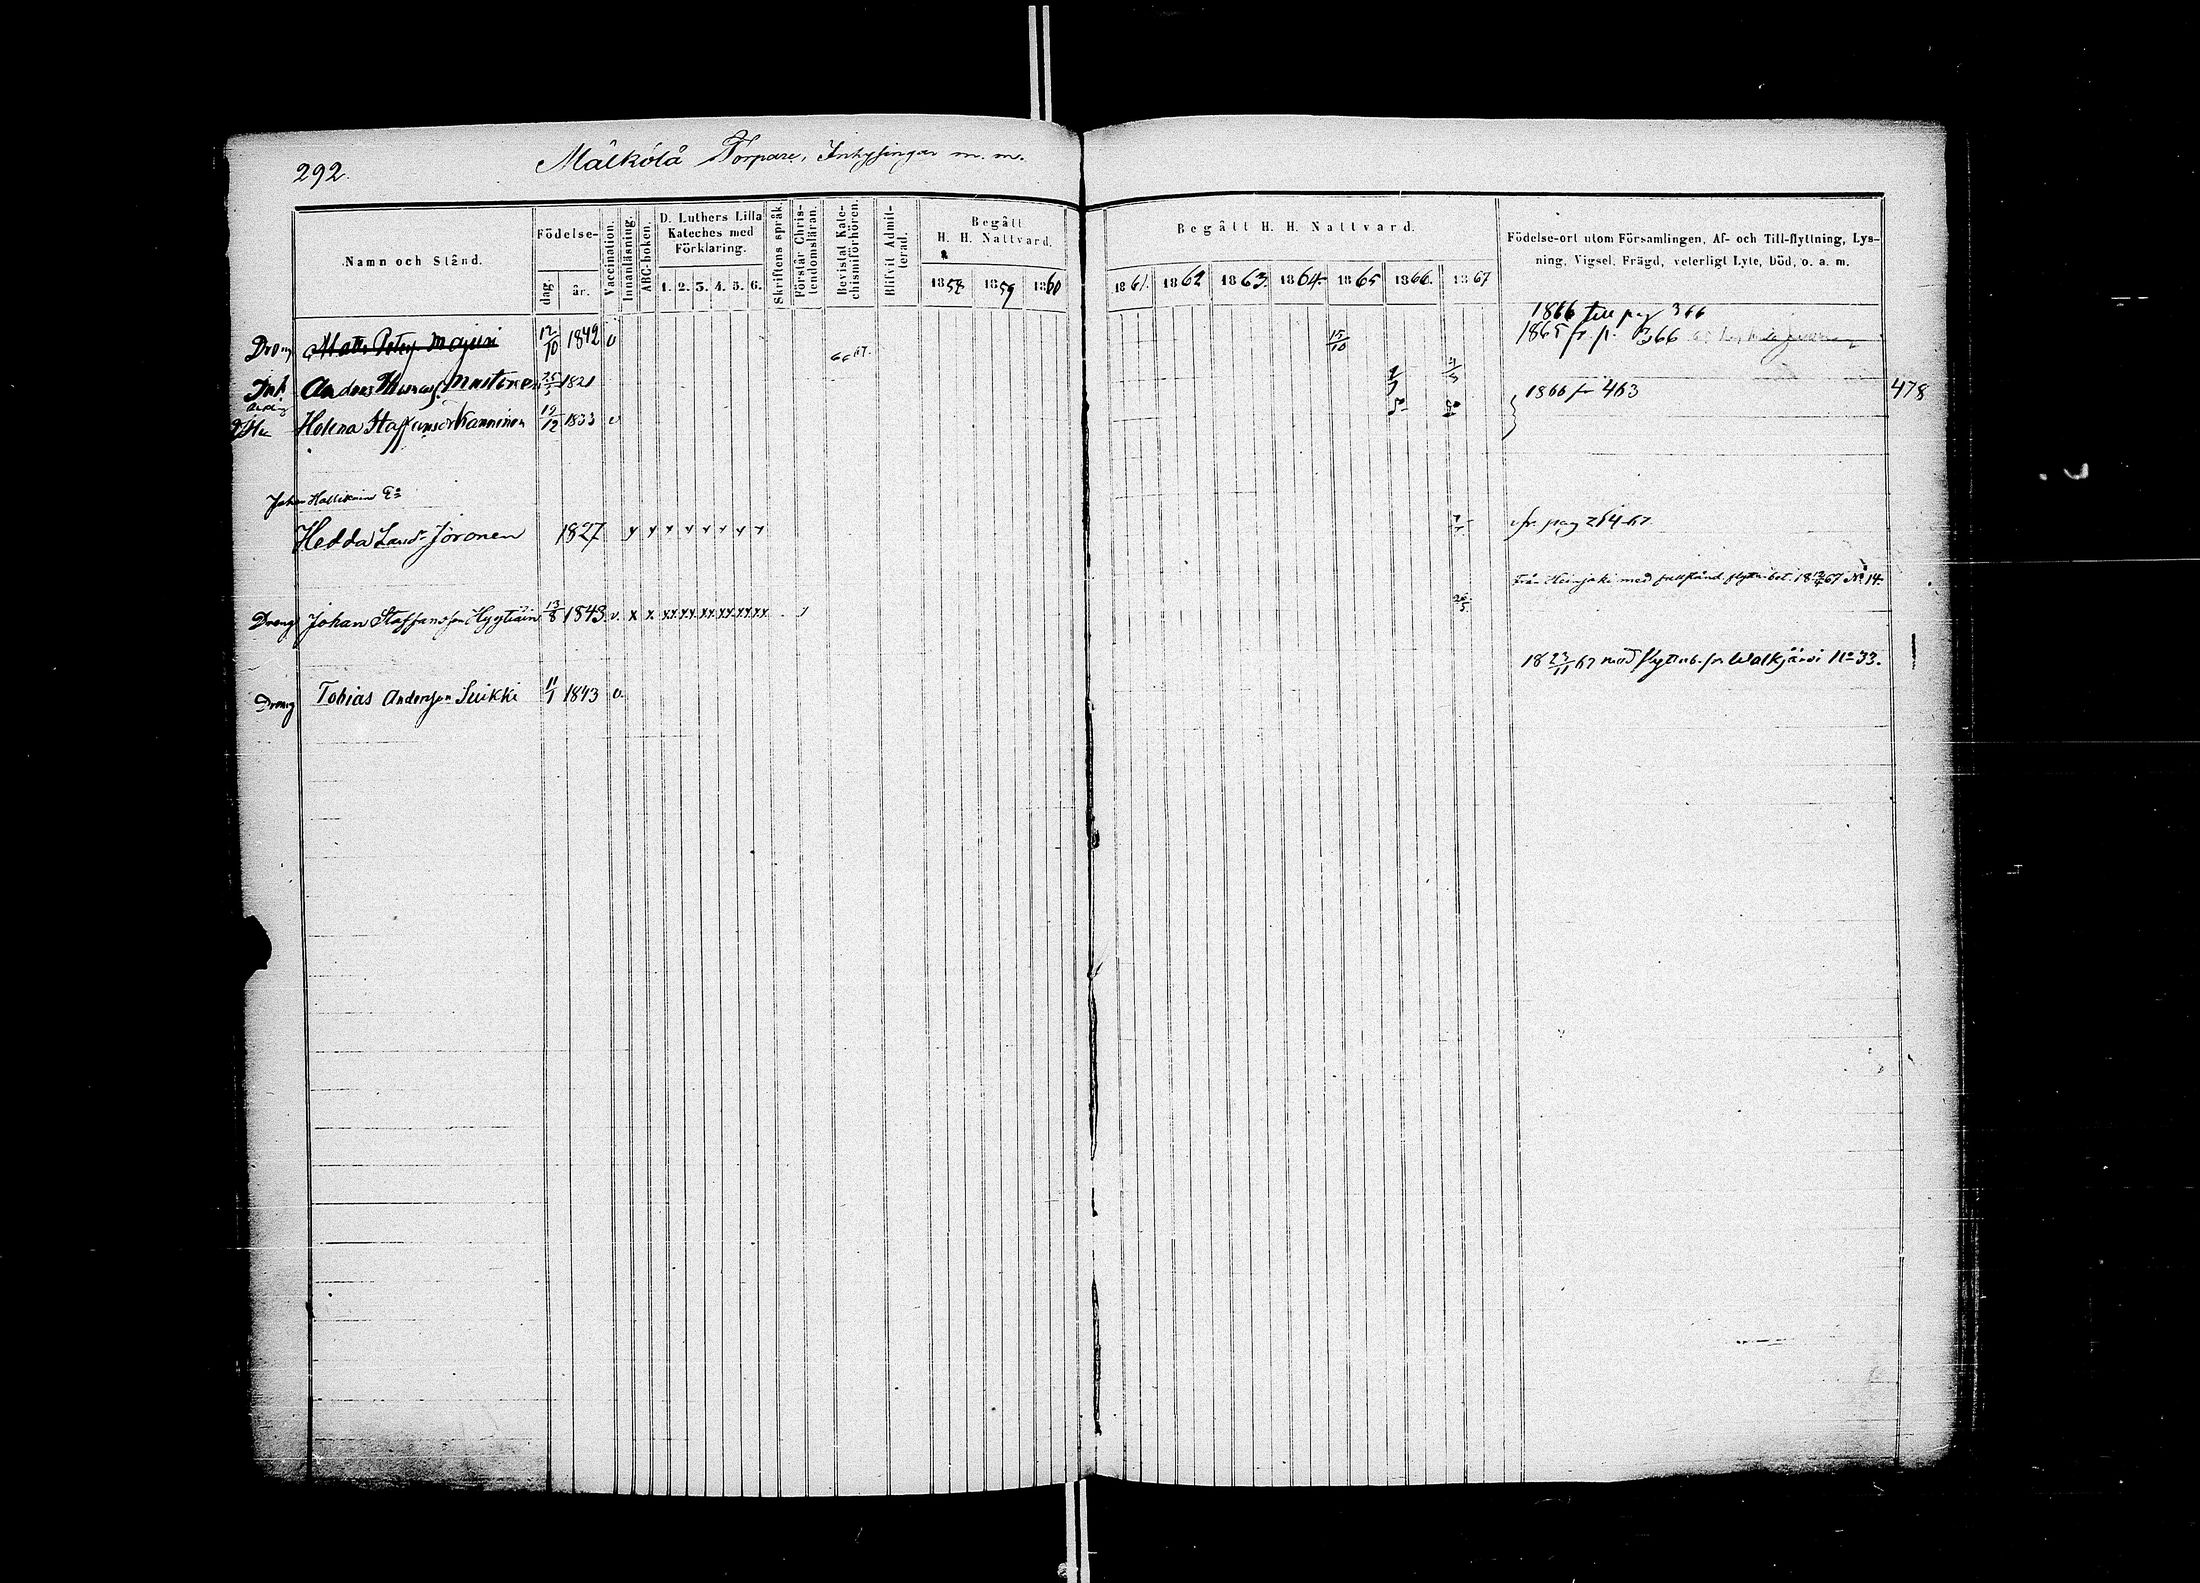 292.
Mälkölä Torpare, Inhysingar m. m.
Namn och Stånd.
Födelse-
dag.
år.
Vaccination.
Innanläsning.
ABC-boken.
D. Luthers Lilla
Kateches med
Förklaring.
1. 2. 3. 4. 5. 6.
Skriftens språk.
Förstår Chris-
tendomsläran.
Bevistat Kate-
chismiförhören.
Blifvit Admit-
terad.
Begått
H. H. Nattvard.
1858 1859 1860
Begått H. H. Nattvard.
1861. 1862 1863. 1864. 1865 1866. 1867
Födelse-ort utom Församlingen, Af- och Till-flyttning, Lys-
ning, Vigsel, Frägd, veterligt Lyte, Död, o. a. m.
1866 till pag 366
Dräng Matts Petersj Majuri 12/10 1842 v 66 67. 15/10 1865 fr. p. 366
Inh. Anders Thomasj Mustonen 1821 1866 fr 463 478
Helena Staffansdr Kanninen 19/12 1833 v
Johan
Hedda Larsdr Joronen 1827 x x x x x x x x fr. pag 264-67.
Från Heinjoki med flyttn.bet. 18 67 No 14.
Dräng Johan Staffansson Hyytiäin 13/8 1843. v. x x xx xx xx xx xx xx 26/5.
18 23/11 67 med flyttnb. fr Walkjärvi No 33.
Dräng Tobias Andersson Suikki 11/1 1843 v.